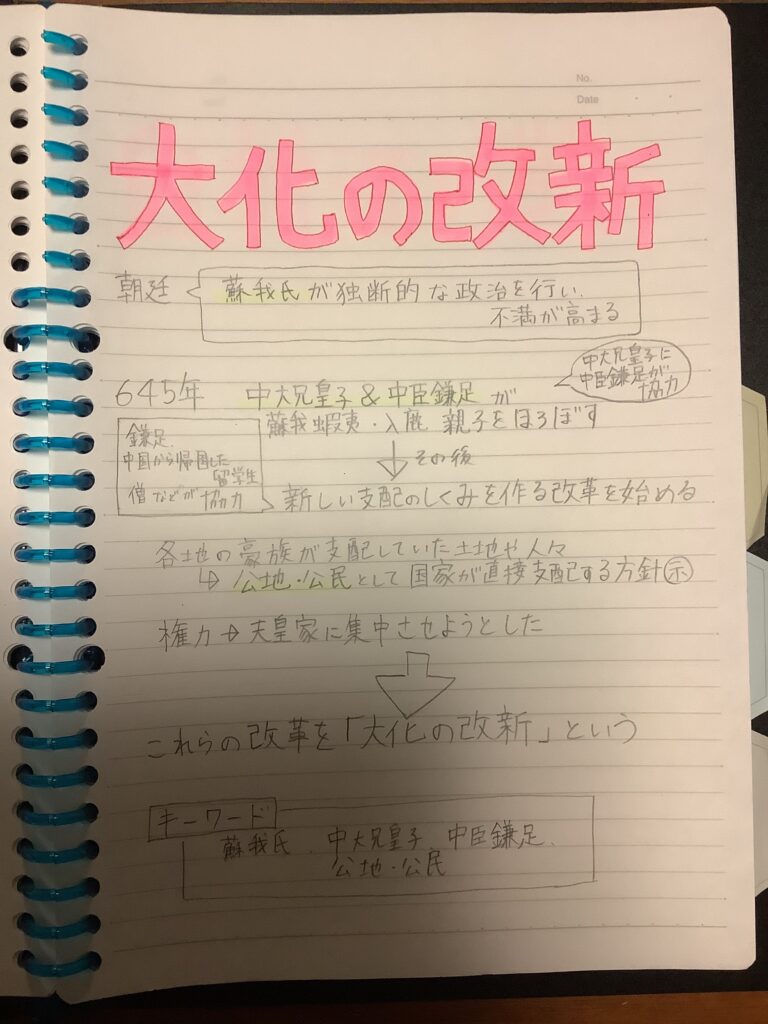 No.
Date
大化の改新
朝廷
蘇我氏が独断的な政治を行い、
不満が高まる
中大兄皇子に
中臣鎌足が
協力
645年 中大兄皇子&中臣鎌足が
蘇我蝦夷・入鹿 親子をほろぼす
↓その後
鎌足、
中国から帰国した
留学生
僧などが協力
新しい支配のしくみを作る改革を始める
各地の豪族が支配していた土地や人々
↳公地・公民として国家が直接支配する方針㋛
権力→天皇家に集中させようとした
これらの改革を「大化の改新」という
キーワード
蘇我氏、中大兄皇子、中臣鎌足、
公地・公民